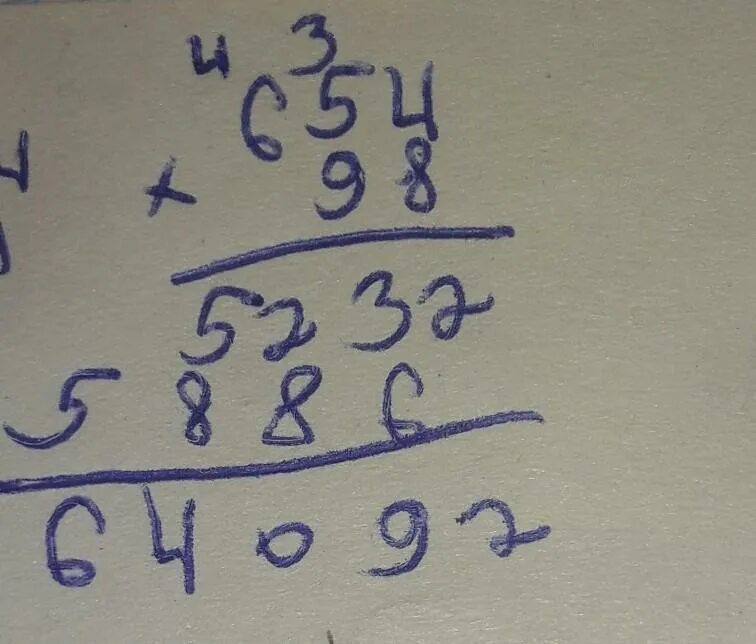 4 3
654
× 98
5232
5886
64092